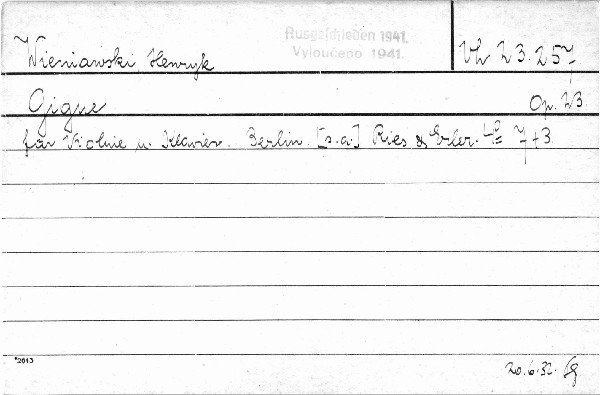 Ausgeschieden 1941.
Vyloučeno 1941.
Wieniawski Henryk
Vh 23.257
Gigue
Op. 23.
für Violine u. Klavier. Berlin. [s.a.] Ries & Erler. 4° 7+3
*2613
20.6.32.